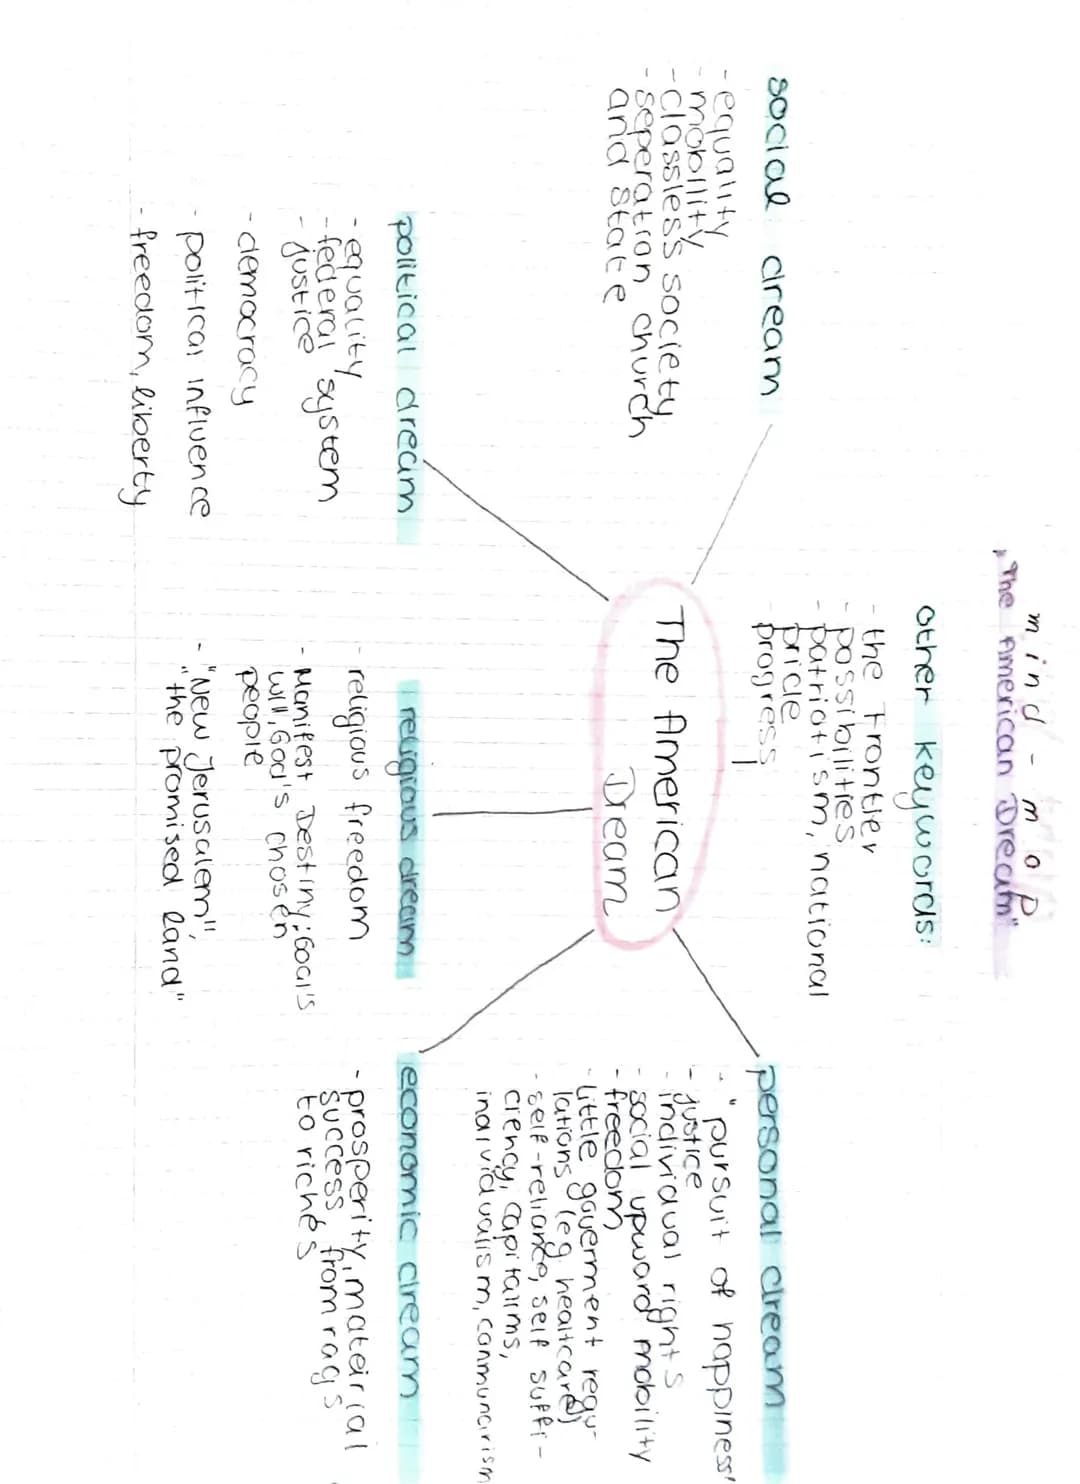 mind-map
"The American Dream"
other keywords:
- the Frontier
- possibilities
- patriotism, national
pride
- progress
social dream
- equality
- mobility
- classless society
- seperation church
and state
The American
Dream
personal dream
- "pursuit of happiness"
- justice
- individual rights
- social upward mobility
- freedom
- little goverment regu-
lations (eg. healtcare)
- self-reliance, self suffi-
ciency, capitalims,
individualism, communarism
political dream
- equality
- federal system
- justice
- democracy
- political influence
- freedom, liberty
religious dream
- religious freedom
- Manifest Destiny: God's
will, God's chosen
people
- "New Jerusalem",
"the promised land"
economic dream
- prosperity, mateirial
success from rags
to riches